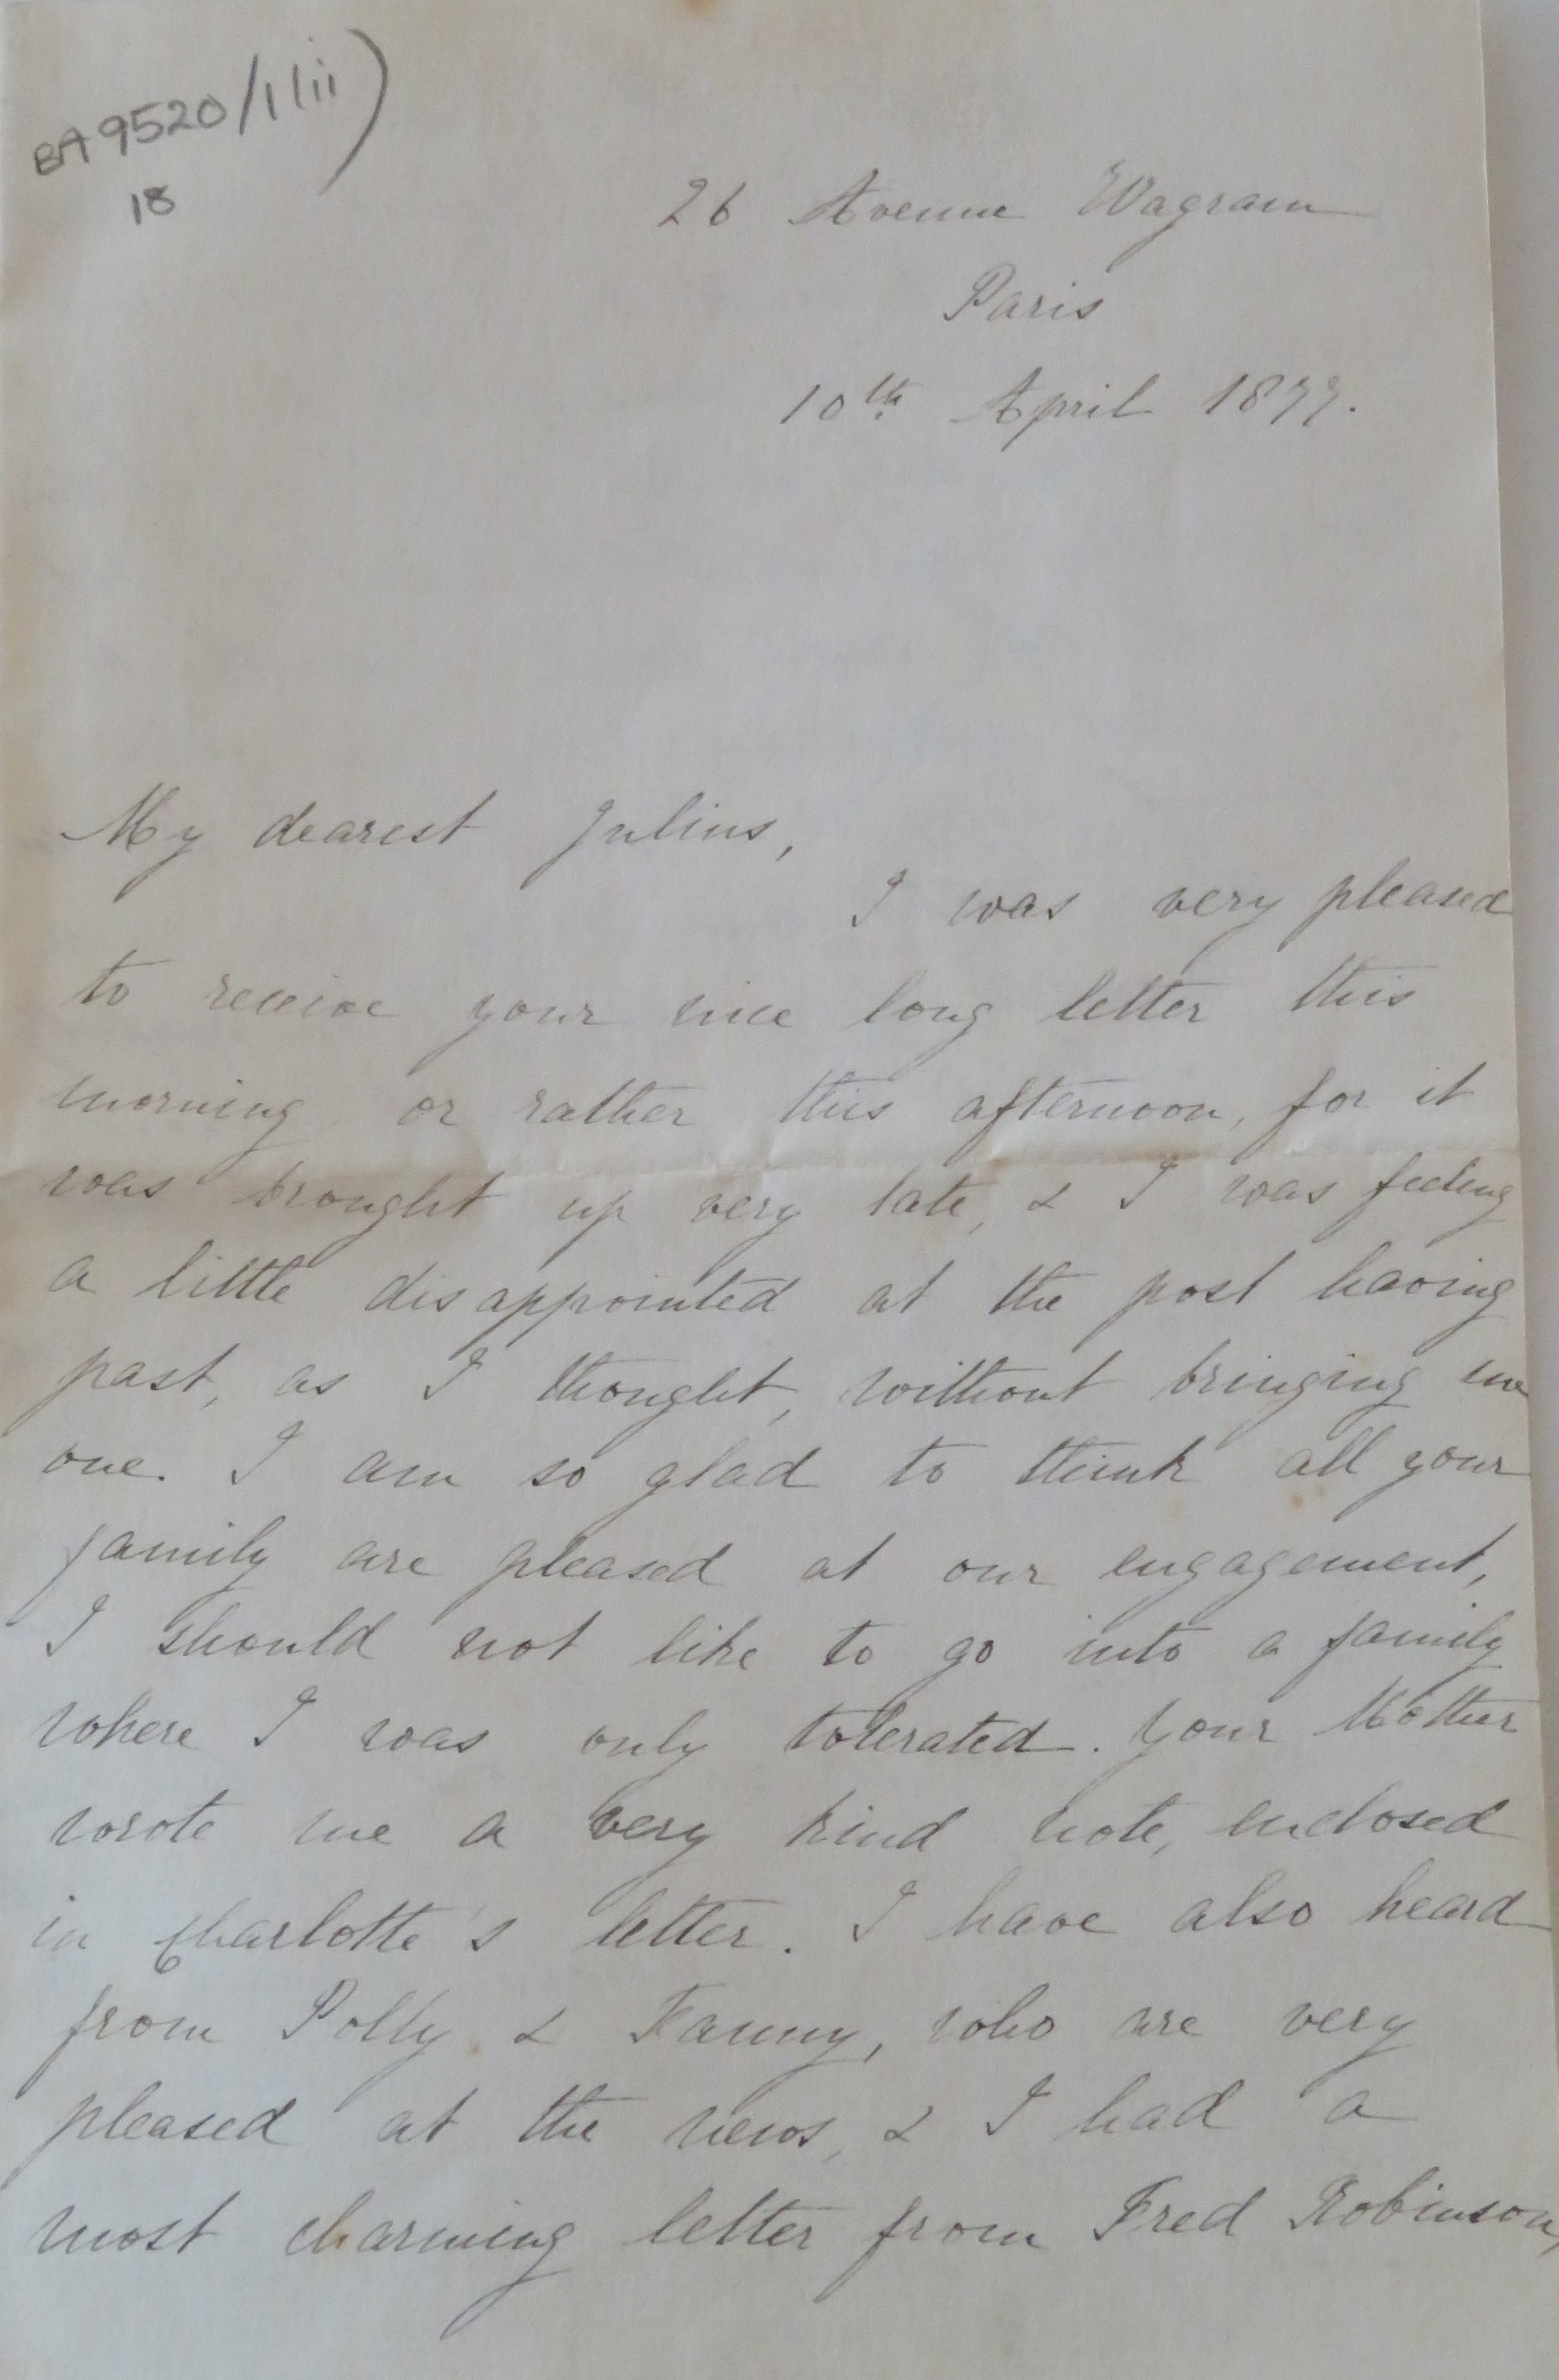 BA 9520/1(ii)
18
26 Avenue Wagram
Paris
10th April 1877.
My dearest Julius,
I was very pleased
to receive your nice long letter this
morning, or rather this afternoon, for it
was brought up very late, & I was feeling
a little disappointed at the post having
past, as I thought, without bringing me
one. I am so glad to think all your
family are pleased at our engagement,
I should not like to go into a family
where I was only tolerated. Your Mother
wrote me a very kind note, enclosed
in Charlotte's letter. I have also heard
from Polly & Fanny, who are very
pleased at the news, & I had a
most charming letter from Fred Robinson,